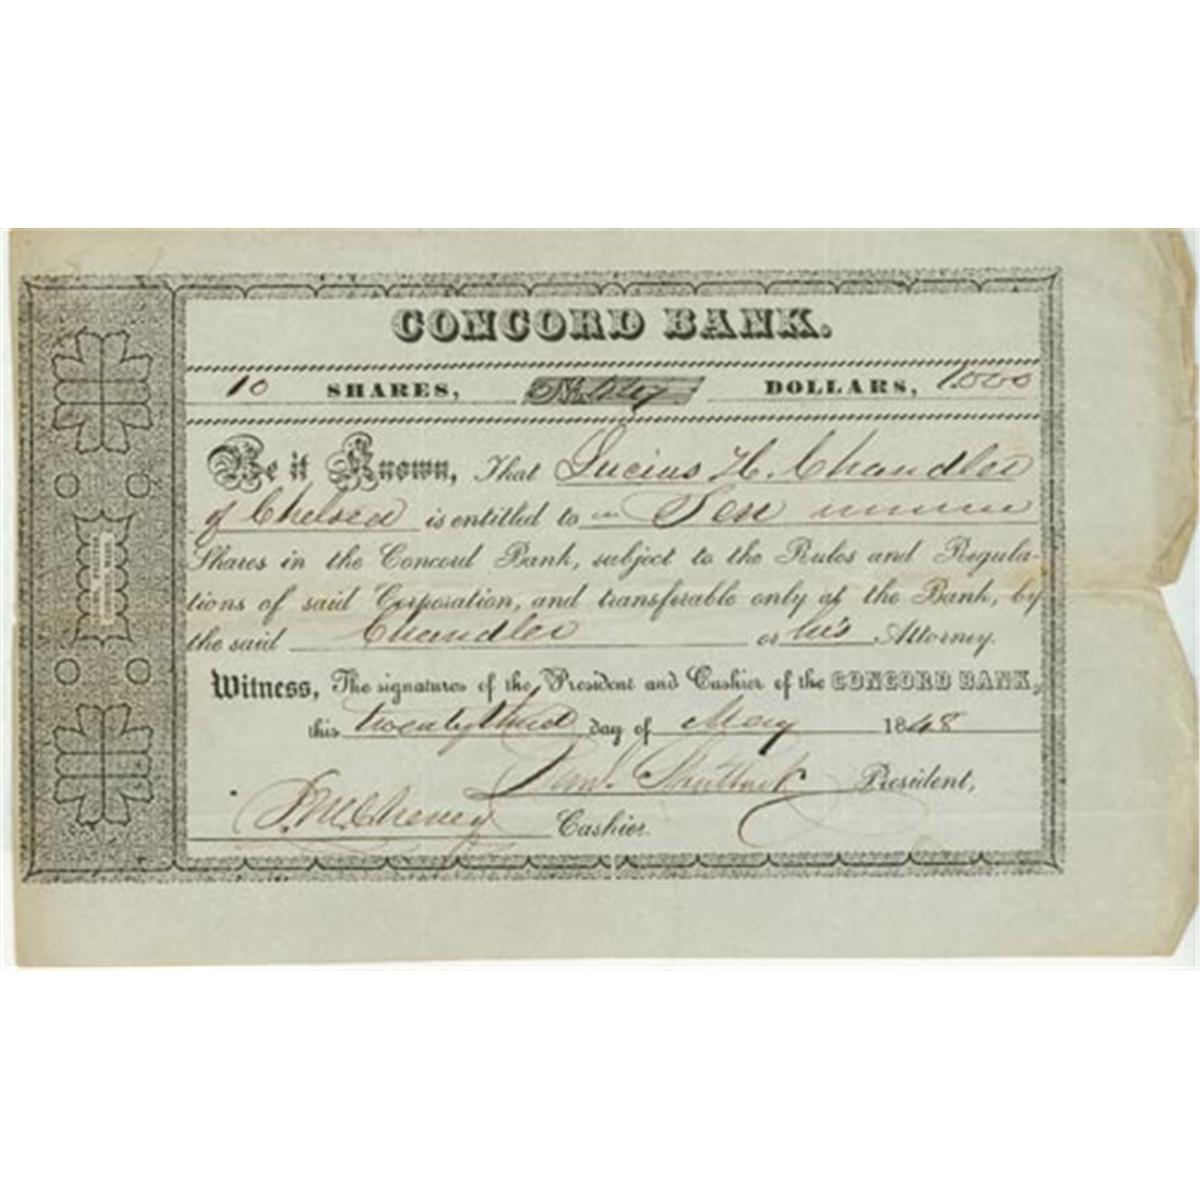 CONCORD BANK.
10 SHARES, No. DOLLARS, 1000
Be it Known, That Lucius H. Chandler
of Chelsea is entitled to Ten
Shares in the Concord Bank, subject to the Rules and Regula-
tions of said Corporation, and transferable only at the Bank, by
the said Chandler or his Attorney.
Witness, The signatures of the President and Cashier of the CONCORD BANK,
this twenty third day of May 1848
Danl. Shattuck President,
J. M. Cheney Cashier.